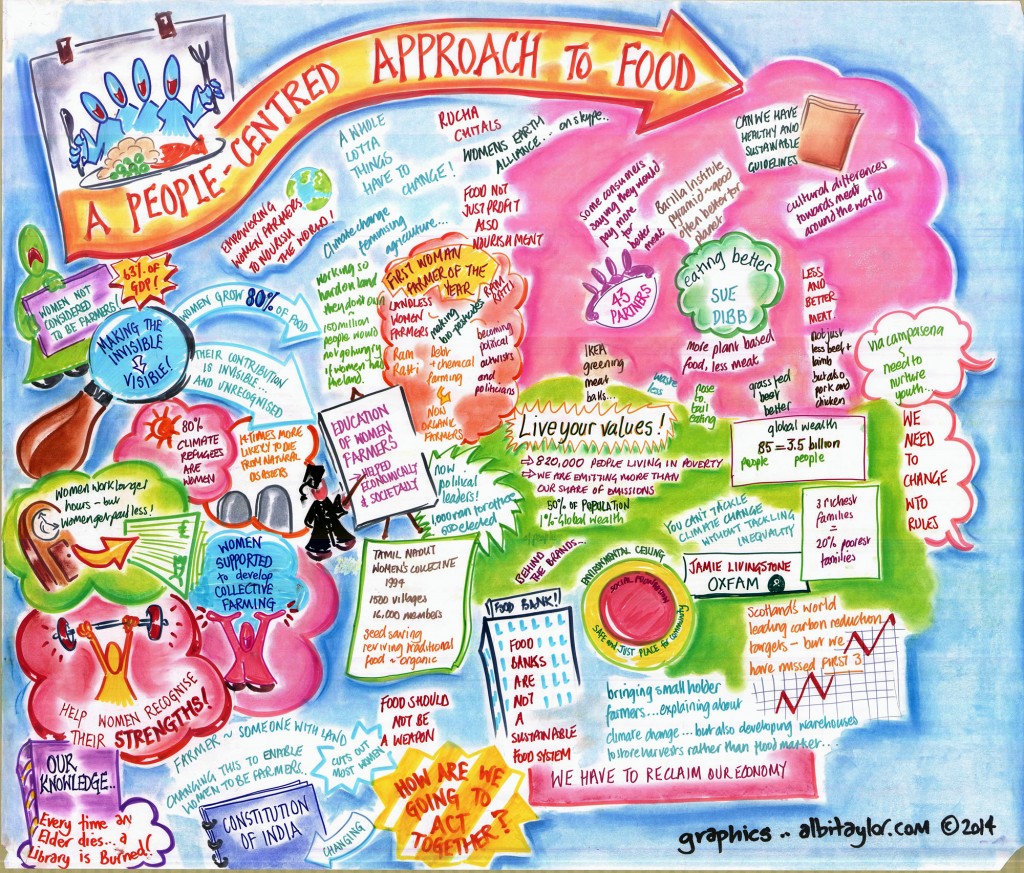 A PEOPLE-CENTRED APPROACH TO FOOD
A WHOLE
LOTTA
THINGS
HAVE TO
CHANGE!
RUCHA
CHITALS
WOMENS EARTH
ALLIANCE... on skype..
EMPOWERING
WOMEN FARMERS
TO NOURISH
THE WORLD!
Climate change
feminising
agriculture...
FOOD NOT
JUST PROFIT
ALSO
NOURISHMENT
WOMEN NOT
CONSIDERED
TO BE FARMERS!
63% OF
GDP!
MAKING THE
INVISIBLE
VISIBLE!
WOMEN GROW 80% OF FOOD
THEIR CONTRIBUTION
IS INVISIBLE...
AND UNRECOGNISED
working so
hard on land
they don't own
150 million
people would
not go hungry
if women had
the land.
FIRST WOMAN
FARMER OF THE
YEAR
LANDLESS
WOMEN
FARMERS
making
bio pesticides
RAM
RATTI
Ram
Ratti
debt
+ chemical
farming
NOW
ORGANIC
FARMERS
becoming
political
activists
and
politicians
80%
CLIMATE
REFUGEES
ARE
WOMEN
14-TIMES MORE
LIKELY TO DIE
FROM NATURAL
DISASTERS
EDUCATION
OF WOMEN
FARMERS
HELPED
ECONOMICALLY
& SOCIETALLY
now
political
leaders!
1,000 ran for office
500 elected
Women work longer
hours - but
women get paid less!
WOMEN
SUPPORTED
to develop
COLLECTIVE
FARMING
TAMIL NADUT
WOMEN'S COLLECTIVE
1994
1500 villages
16,000 members
seed saving
reviving traditional
food ~ organic
HELP WOMEN RECOGNISE
THEIR STRENGTHS!
FARMER ~ SOMEONE WITH LAND
CHANGING THIS TO ENABLE
WOMEN TO BE FARMERS..
CUTS OUT
MOST WOMEN
CONSTITUTION
OF INDIA
CHANGING
OUR
KNOWLEDGE..
Every time an
Elder dies... a
Library is Burned!
FOOD SHOULD
NOT BE
A WEAPON
HOW ARE WE
GOING TO
ACT
TOGETHER?
CAN WE HAVE
HEALTHY AND
SUSTAINABLE
GUIDELINES
some consumers
saying they would
pay more
for
better
meat
Barilla Institute
pyramid ~ good
often better for
planet
cultural differences
towards meat
around the world
43
PARTNERS
eating better
SUE
DIBB
more plant based
food, less meat
LESS
AND
BETTER
MEAT.
not just
less beef +
lamb
but also
pork and
chicken
IKEA
greening
meat
balls...
waste
less
nose
to
tail
eating
grass fed
beef
better
via campasena
& need to
nurture
youth...
WE
NEED
TO
CHANGE
WTO
RULES
Live your values!
820,000 PEOPLE LIVING IN POVERTY
WE ARE EMITTING MORE THAN
OUR SHARE OF EMISSIONS
50% OF POPULATION
1% Global wealth
global wealth
85 = 3.5 billion
people people
YOU CAN'T TACKLE
CLIMATE CHANGE
WITHOUT TACKLING
INEQUALITY
3 richest
families
=
20% poorest
families
JAMIE LIVINGSTONE
OXFAM
BEHIND
THE BRANDS...
ENVIRONMENTAL CEILING
SOCIAL FOUNDATION
SAFE and JUST PLACE for community
FOOD BANK!
FOOD
BANKS
ARE
NOT
A
SUSTAINABLE
FOOD SYSTEM
Scotland's world
leading carbon reduction
targets - but we
have missed FIRST 3
bringing small holder
farmers... explaining about
climate change... but also developing warehouses
to store harvests rather than flood market...
WE HAVE TO RECLAIM OUR ECONOMY
graphics .. albitaylor.com © 2014